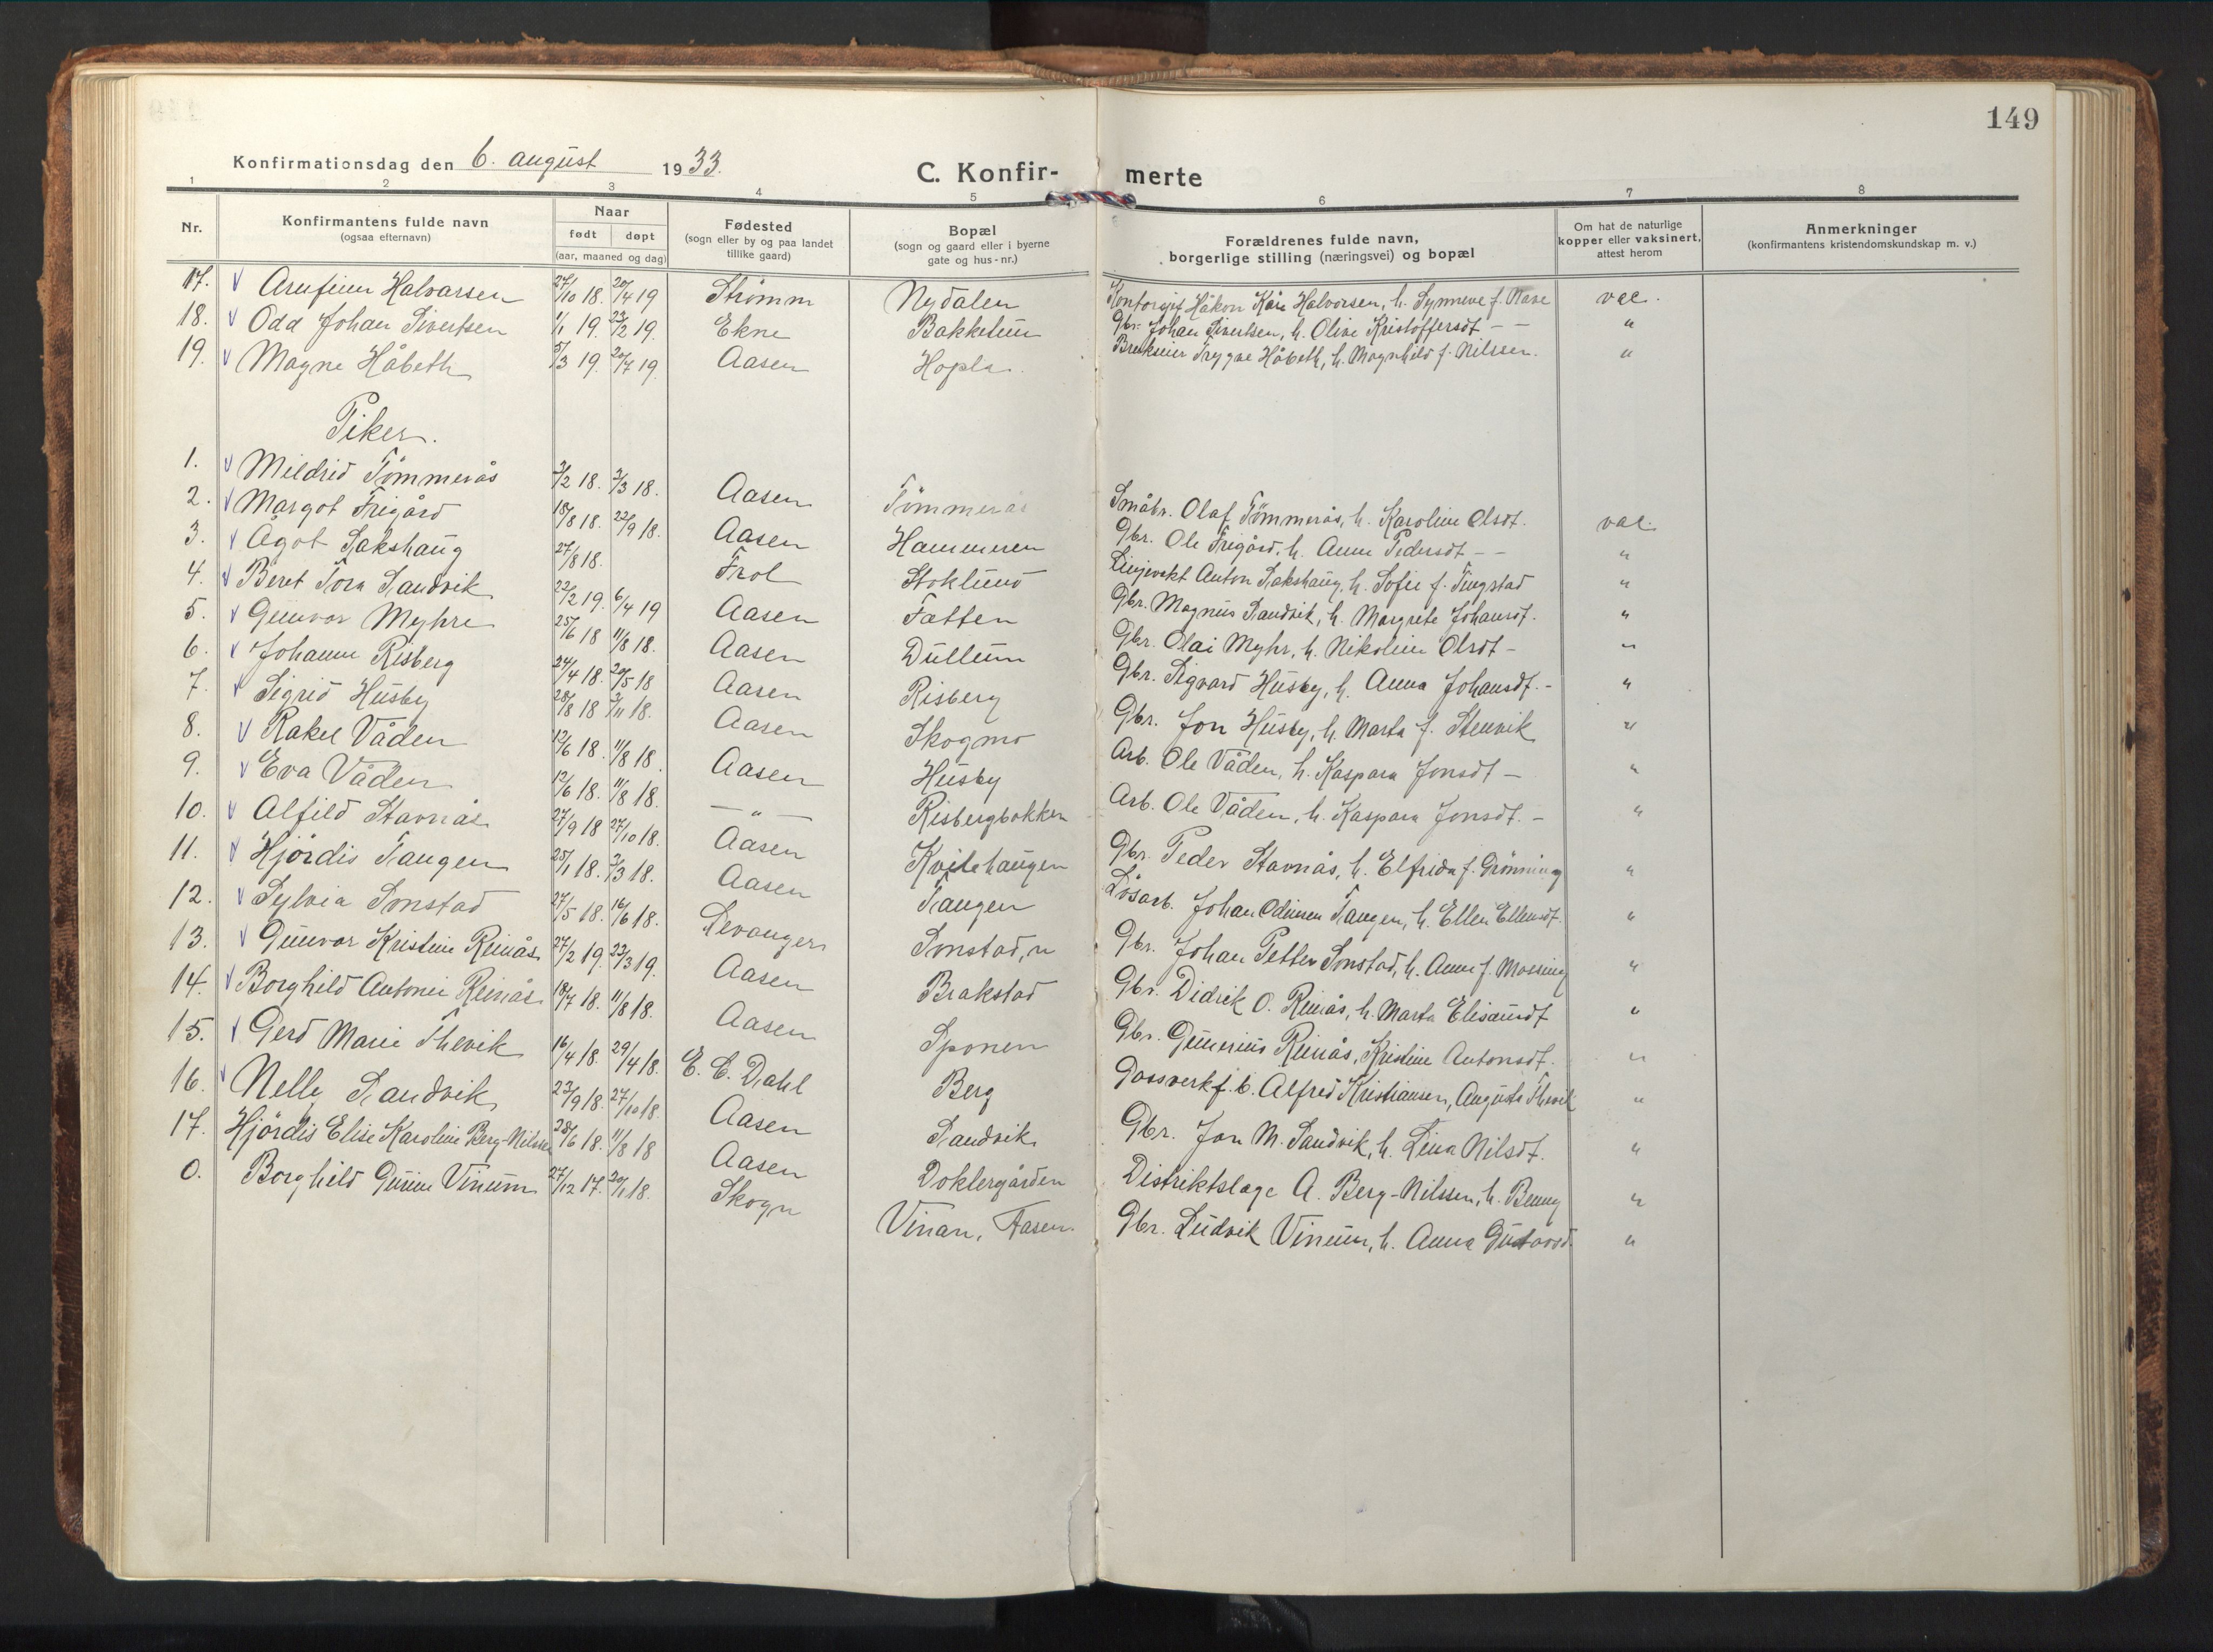 149
Konfirmationsdag den 6. august 1933.
C. Konfir- merte
1 2 3 4 5 6 7 8
Nr. Konfirmantens fulde navn (ogsaa efternavn) Naar født døpt (aar, maaned og dag) Fødested (sogn eller by og paa landet tillike gaard) Bopæl (sogn og gaard eller i byerne gate og hus-nr.) Forældrenes fulde navn, borgerlige stilling (næringsvei) og bopæl Om hat de naturlige kopper eller vaksinert, attest herom Anmerkninger (konfirmantens kristendomskundskap m. v.)
17. Arnfinn Halvorsen 27/10 18. 20/4 19 Strømm Nydalen Håkon Kåre Halvorsen, h. Synneve f. vac.
18. Odd Johan Sivertsen 1/1 19. 23/2 19. Ekne Bakketun Gbr. Johan Sivertsen, h. Olive Kristoffersdt - - "
19. Magne Håbeth 5/3 19. 20/7 19. Aasen Hopla. Trygve Håbeth, h. Magnhild f. Nilssen. "
Piker.
1. Mildrid Tømmerås 3/2 18. 3/3 18. Aasen Tømmerås Småbr. Olaf Tømmerås, h. Karoline Olsdt. vac.
2. Margot Frigård 18/8 18. 22/9 18. Aasen Hammeren Gbr. Ole Frigård, h. Anne Pedersdt - - "
3. Ågot Sakshaug 27/8 18. Frol Stoklund Linjevakt Anton Sakshaug, h. Sofie f. Tingstad "
4. Beret Tora Sandvik 22/2 19. 6/4 19 Aasen Fatten Gbr. Magnus Sandvik, h. Margrete Johansdt. "
5. Gunvor Myhre 25/6 18 11/8 18. Aasen Dullum Gbr. Olai Myhr, h. Nikoline Olsdt - "
6. Johanne Risberg 24/4 18. 20/5 18 Aasen Risberg Gbr. Sigvard Husby, h. Anna Johansdt. - "
7. Sigrid Husby 28/8 18 3/11 18. Aasen Skogmo Gbr. Jon Husby, h. Marta f. Stenvik "
8. Rakel Våden 12/6 18. 11/8 18. Aasen Husby Arb. Ole Våden, h. Kaspara Jonsdt - "
9. Eva Våden 12/6 18. 11/8 18. — " — Risbergbakken Arb. Ole Våden, h. Kaspara Jonsdt. - "
10. Alfild Stavnås 27/9 18 27/10 18. Aasen Kvitehaugen Gbr. Peder Stavnås, h. Elfrida f. Grønning "
11. Hjørdis Tangen 25/1 18. 3/3 18. Aasen Tangen Løsarb. Johan Odinsen Tangen, h. Ellen Ellensdt. "
12. Sylvia Sonstad 27/5 18. 16/6 18. Levanger Sonstad, n Gbr. Johan Petter Sonstad, h. Anne f. Mossing "
13. Gunvor Kristine Reinås 27/2 19. 23/3 19. Aasen Brakstad Gbr. Didrik O. Reinås, h. Marta Elisæusdt "
14. Borghild Antonie Reinås 18/7 18. 11/8 18. Aasen Sponen Gbr. Gunerius Reinås, Kristine Antonsdt. "
15. Gerd Marie Thevik 16/4 18. 29/4 18. E. C. Dahl Berg Gassverkf.b. Alfred Kristiansen, Augusta Thevik "
16. Nelly Sandvik 23/9 18. 27/10 18. Aasen Sandvik Gbr. Jon M. Sandvik, h. Lina Nilsdt. "
17. Hjørdis Elise Karoline Berg-Nilssen 28/6 18. 11/8 18 Aasen Doktergården Distriktslæge A. Berg-Nilssen, h. Benny "
0. Borghild Gunne Vinum 27/12 17. 20/1 18. Skogn Vinan, Aasen Gbr. Ludvik Vinum, h. Anna Gustavsd. "